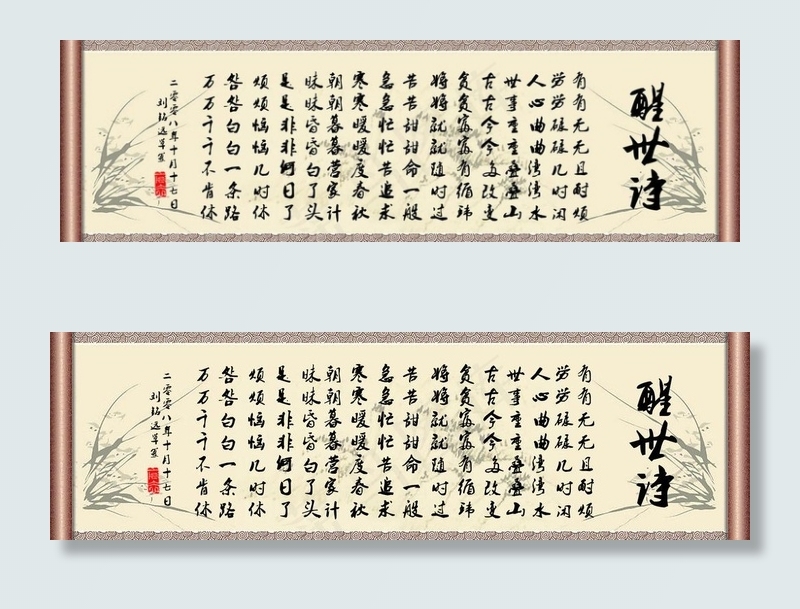 醒世诗
有有无无且耐烦
劳劳碌碌几时闲
人心曲曲湾湾水
世事重重叠叠山
古古今今多改变
贫贫富富有循环
将将就就随时过
苦苦甜甜命一般
急急忙忙苦追求
寒寒暖暖度春秋
朝朝暮暮营家计
昧昧昏昏白了头
是是非非何日了
烦烦恼恼几时休
白白一条路
万万千千不肯休
二零零八年十月十七日
刘
醒世诗
有有无无且耐烦
劳劳碌碌几时闲
人心曲曲湾湾水
世事重重叠叠山
古古今今多改变
贫贫富富有循环
将将就就随时过
苦苦甜甜命一般
急急忙忙苦追求
寒寒暖暖度春秋
朝朝暮暮营家计
昧昧昏昏白了头
是是非非何日了
烦烦恼恼几时休
白白一条路
万万千千不肯休
二零零八年十月十七日
刘